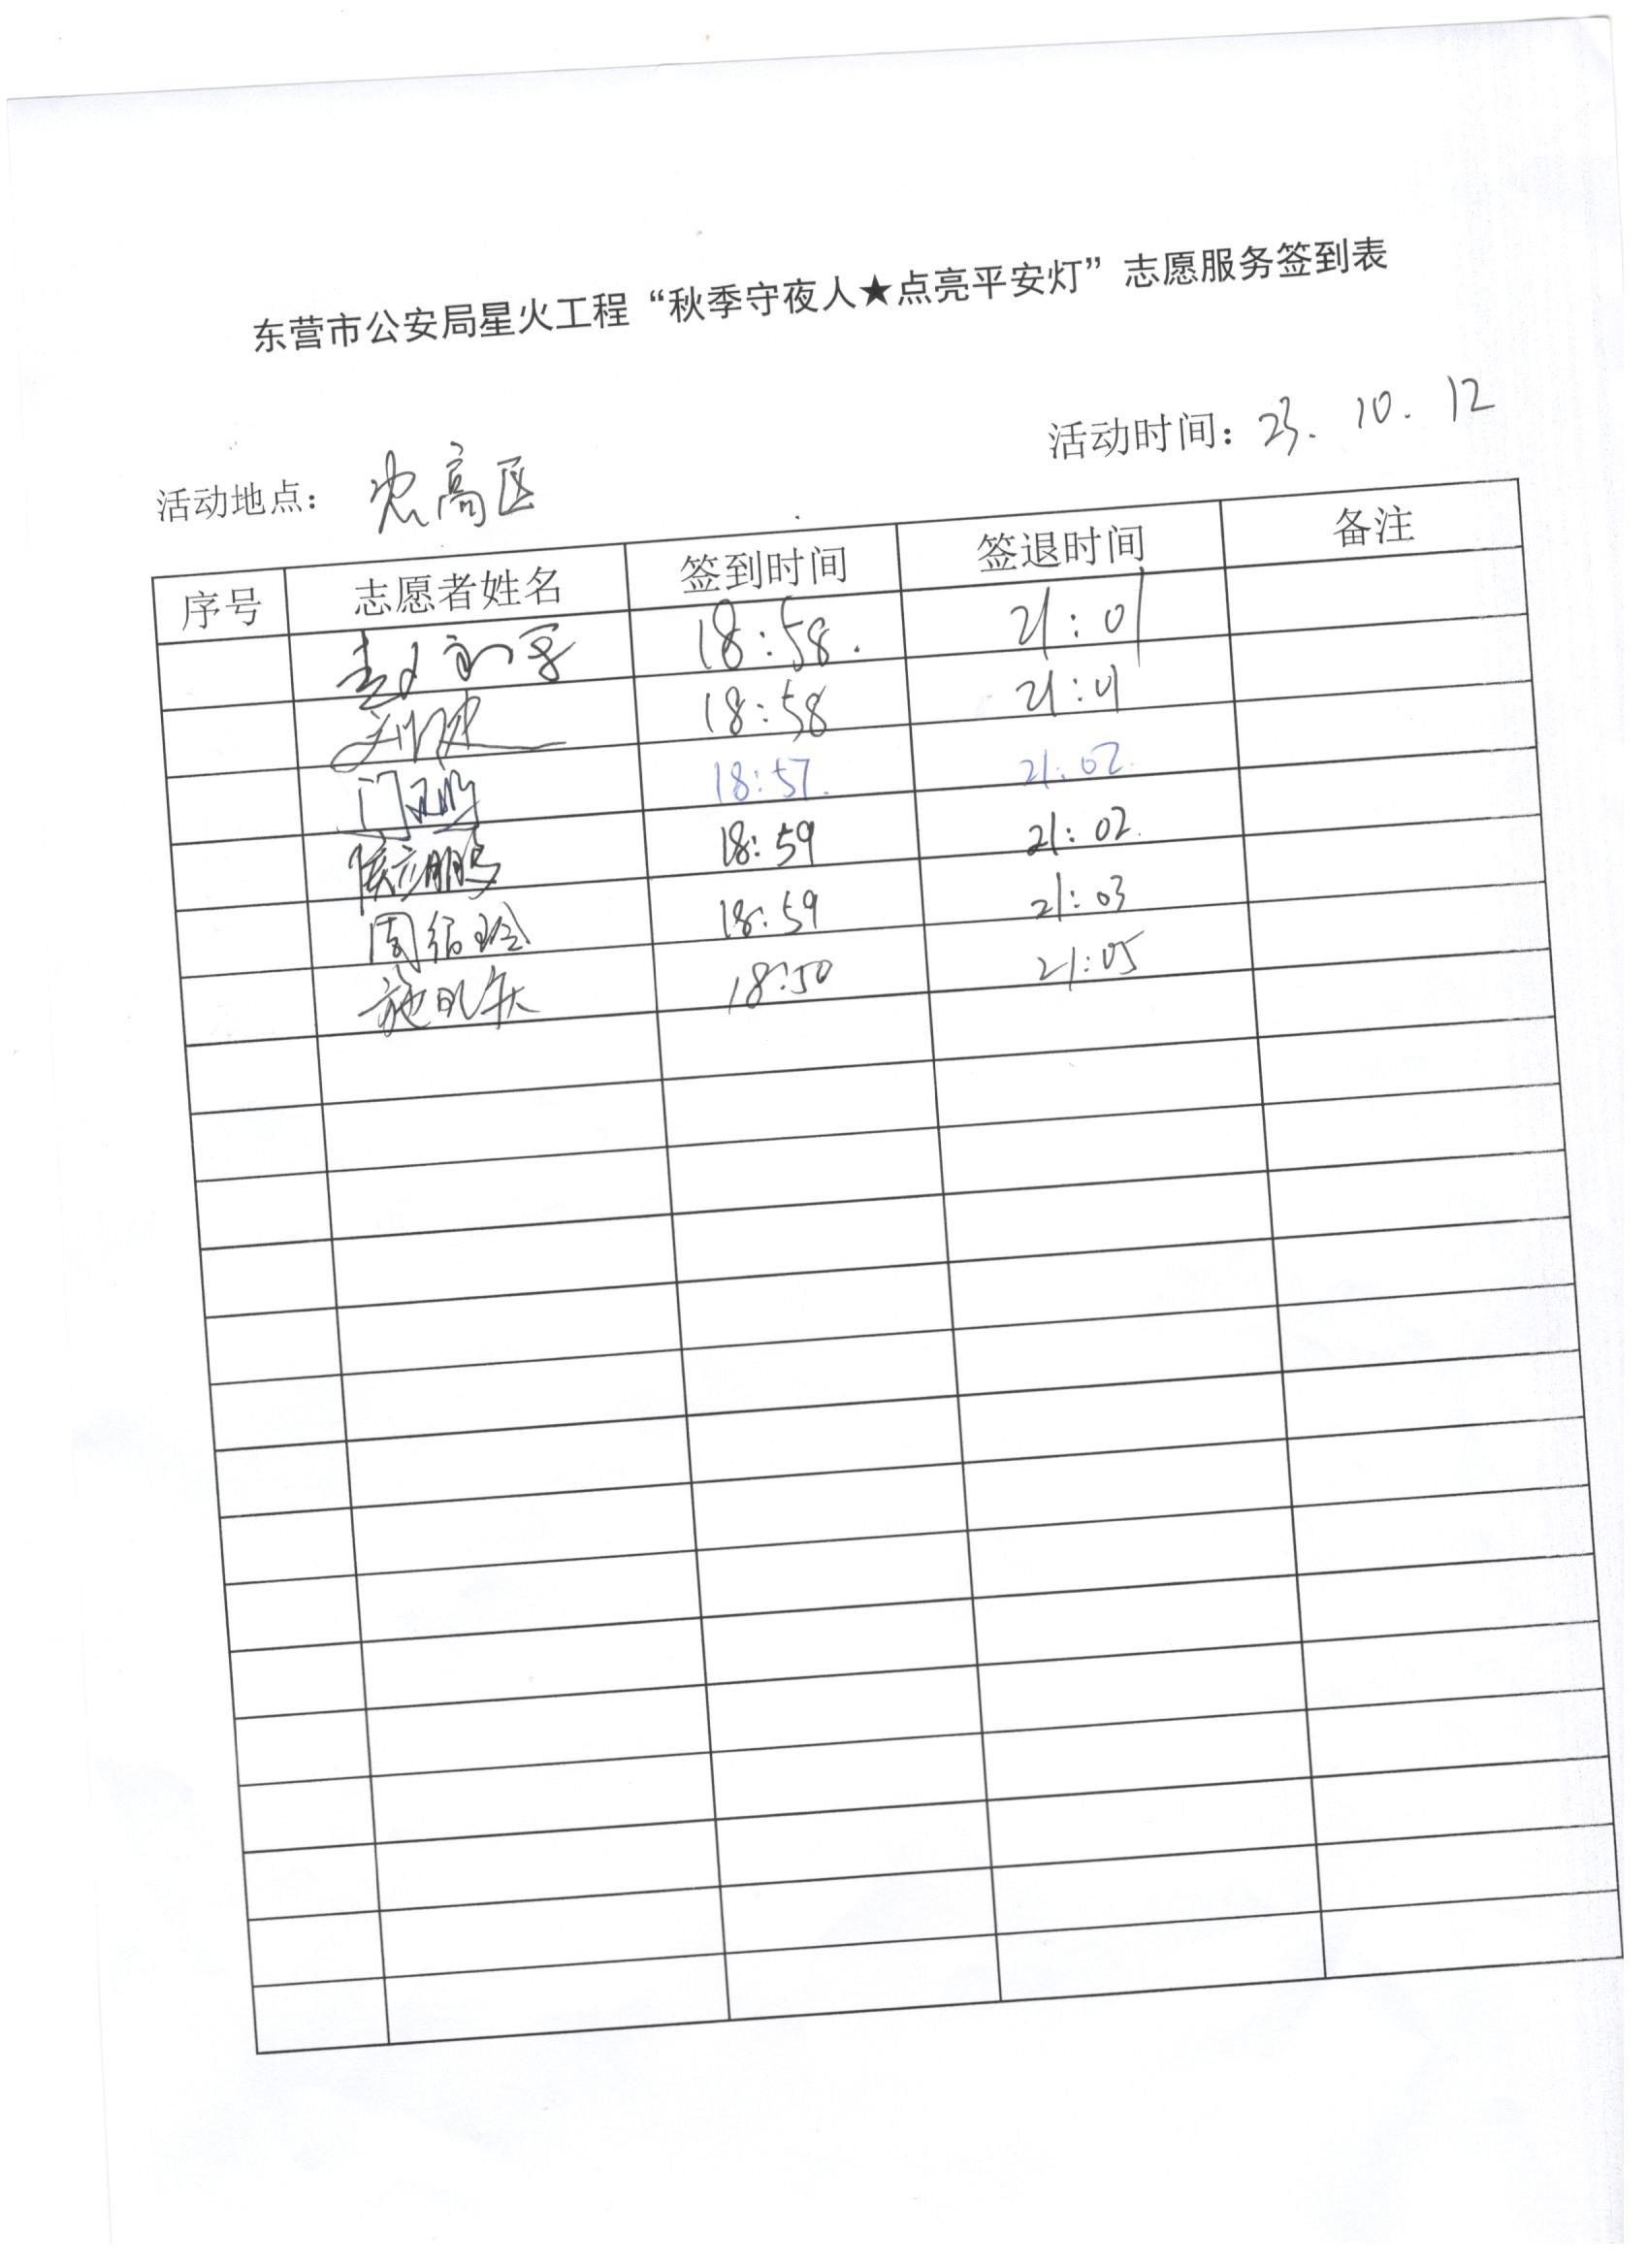 东营市公安局星火工程“秋季守夜人★点亮平安灯”志愿服务签到表
活动地点： 高区 活动时间：23. 10. 12
序号 志愿者姓名 签到时间 签退时间 备注
18:58. 21:01
18:58 21:01
18:57. 21:02.
18:59 21:02.
周绍玲 18:59 21:03
18:50 21:05